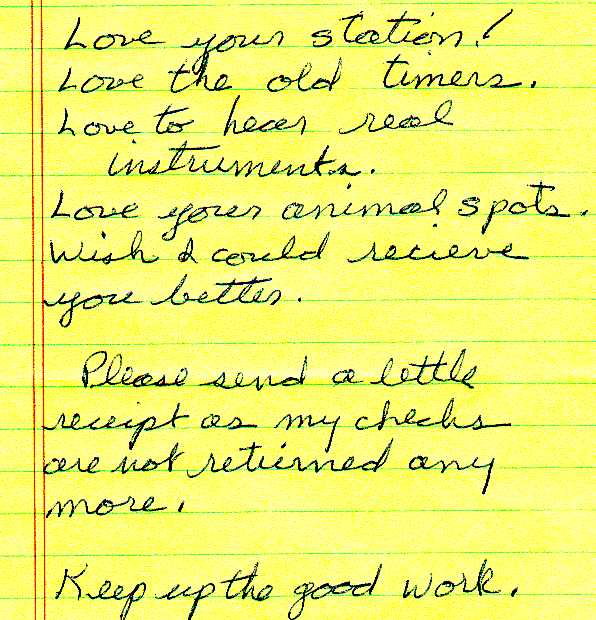 Love your station!
Love the old timers.
Love to hear real
instruments.
Love your animal spots.
Wish I could recieve
you better.
Please send a little
receipt as my checks
are not returned any
more.
Keep up the good work.